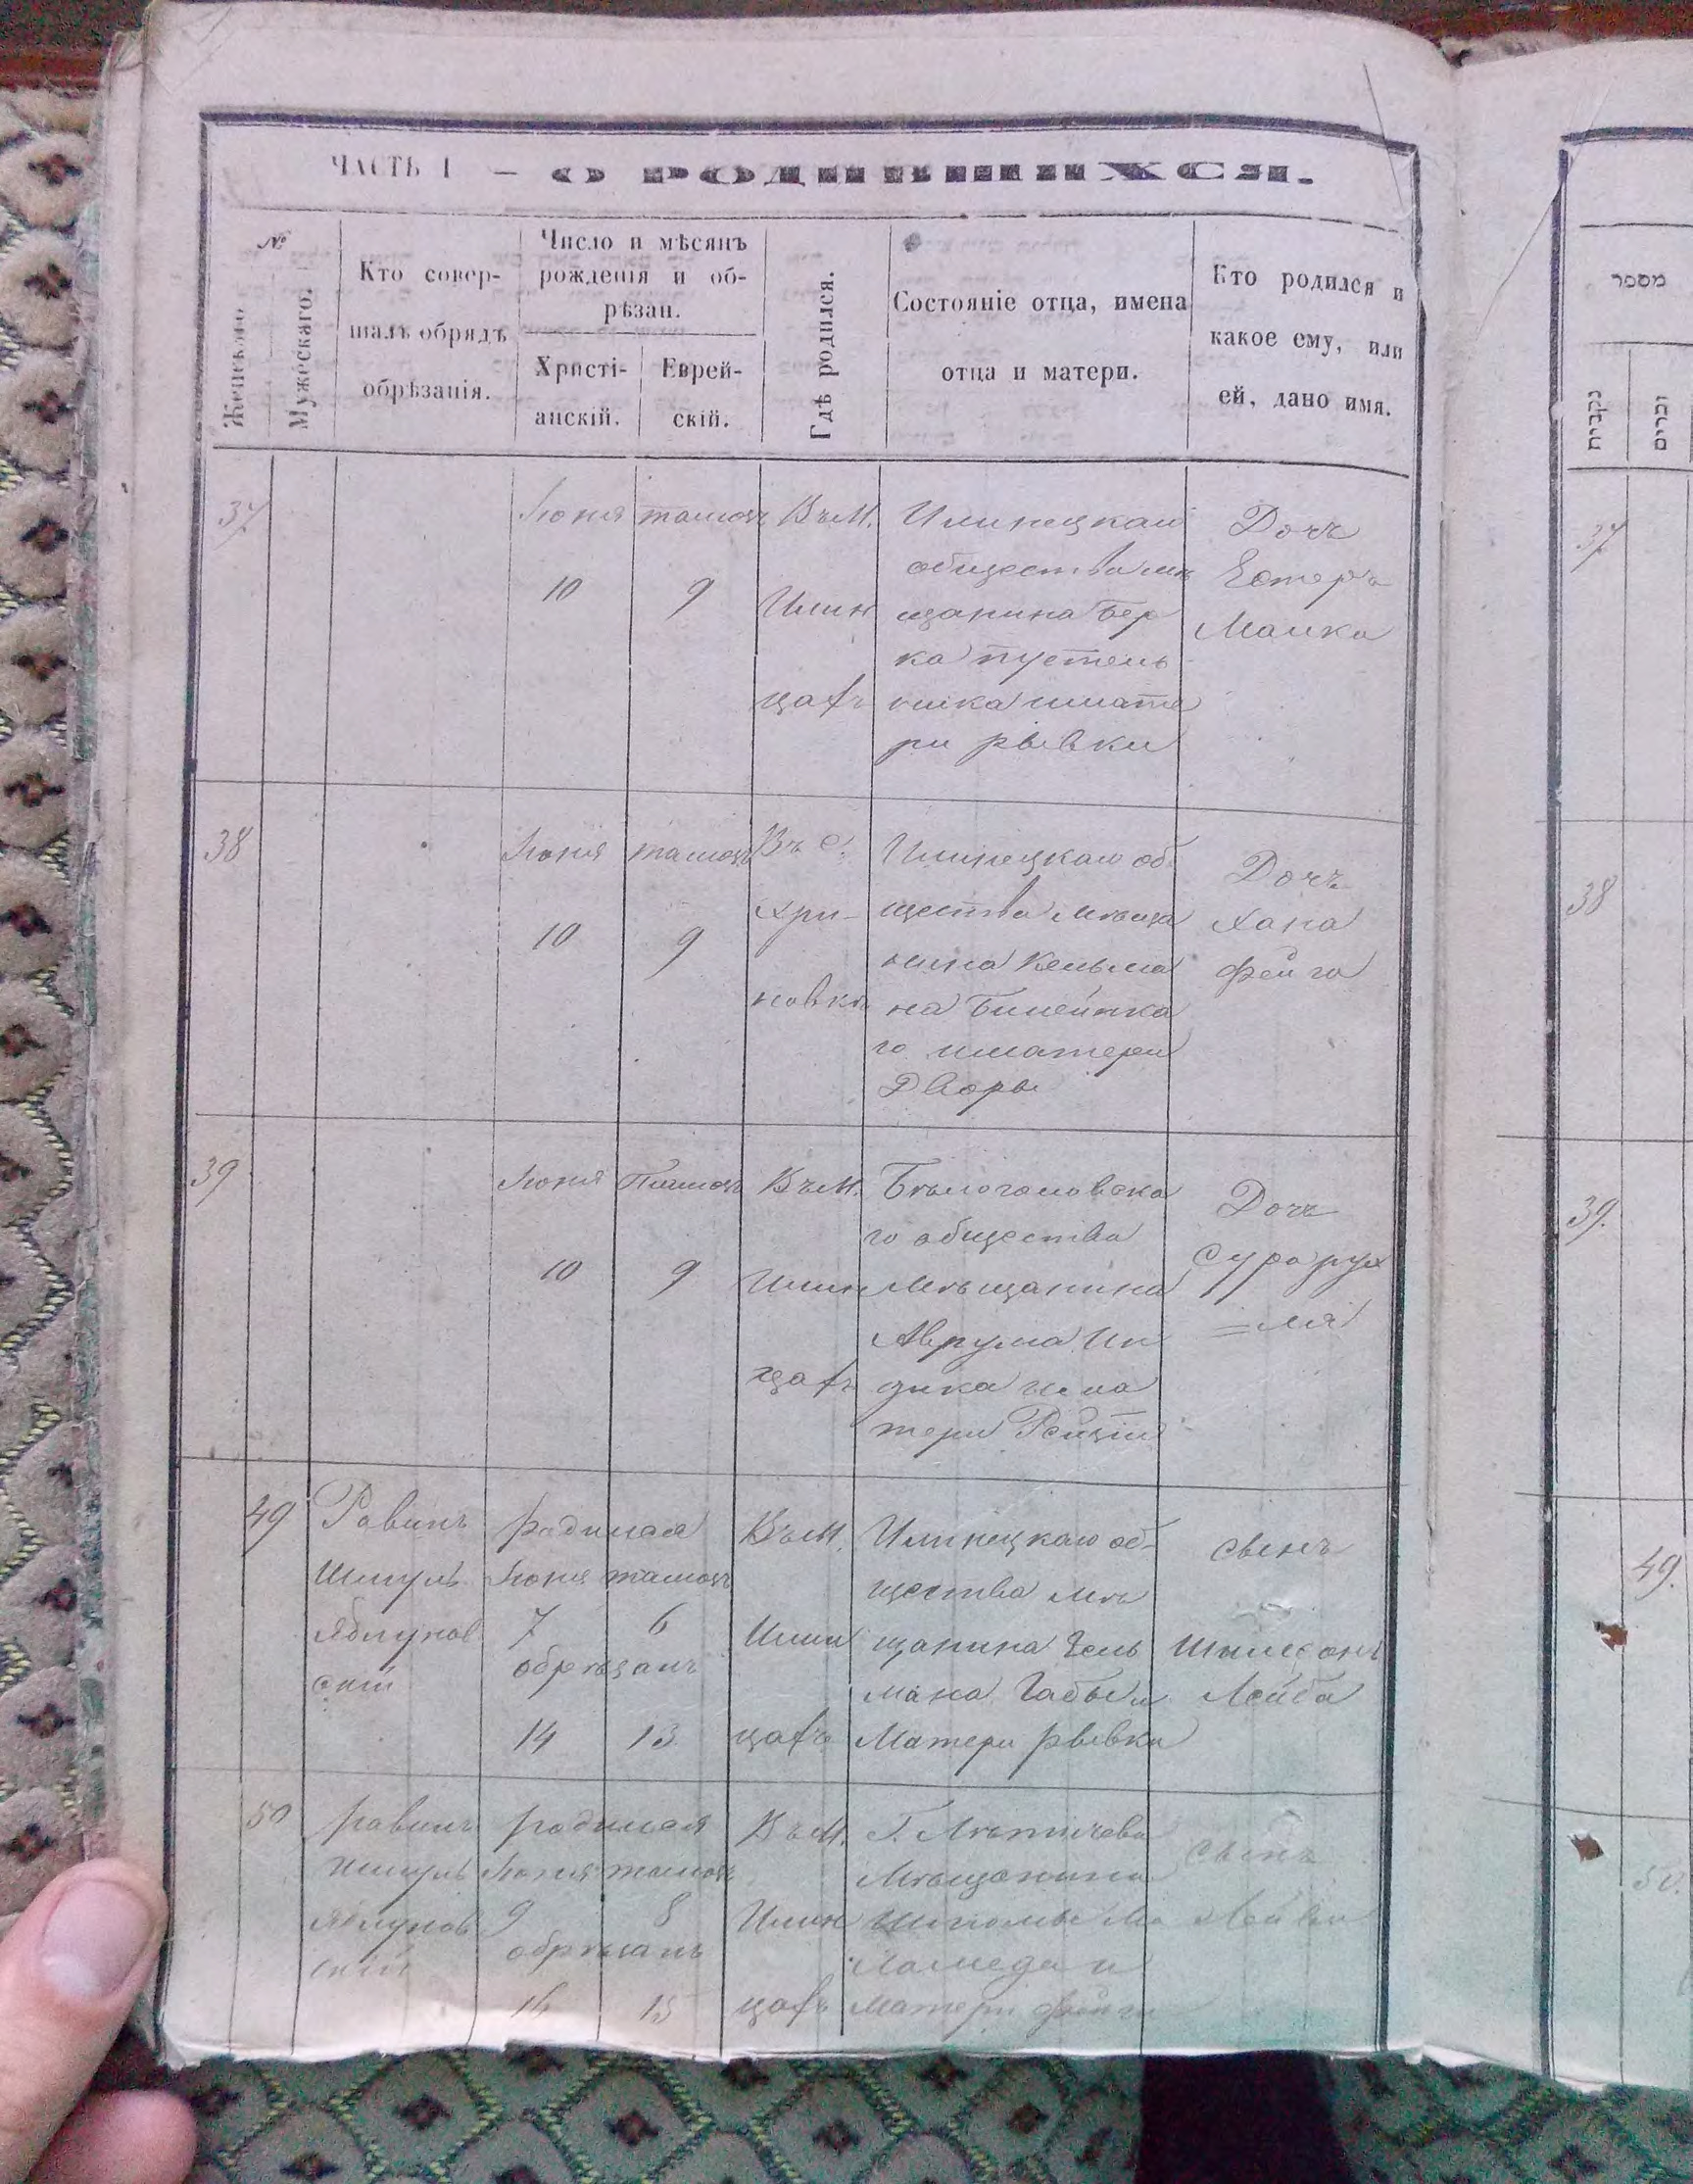 ЧАСТЬ I — О РОДИВШИХСЯ.
№
Женскаго
Мужескаго.
Кто совер-
шалъ обрядъ
обрѣзанія.
Число и мѣсяцъ
рожденія и об-
рѣзан.
Христі-
анскій.
Еврей-
скій.
Гдѣ родился.
Состояніе отца, имена
отца и матери.
Кто родился и
какое ему, или
ей, дано имя.
37
Іюня
10
тамюзъ
9
Въ М.
Илин
цахъ
Илинецкаго
общества мѣ
щанина Бер
ка пустель
ника и мате
ри рывки
Дочь
Естеръ
Малка
38
Іюня
10
тамюзъ
9
Въ с.
хри-
новкѣ
Илинецкаго об
щества мѣща
нина Кельма
на
го и матери
Дворы
Дочь
Хана
фейга
39
Іюня
10
Тамюзъ
9
Въ М.
Илин
цахъ
го общества
Мѣщанина
Аврума Ин
дика и ма
тери
Дочь
Сура рух
=ля
49
Равинъ
Шмуль
Яблунов
скій
родился
Іюня тамюзъ
7 6
обрѣзанъ
14 13
Въ М.
Илин
цахъ
Илинецкаго об-
щества мѣ
щанина Гель
мана
Матери рывки
сынъ
Шимсонъ
Лейба
50
равинъ
шмуль
яблунов
скій
родился
Іюня тамюзъ
9 8
обрѣзанъ
16 15
Въ М.
Илин
цахъ
Г. Лѣтичева
Мѣщанина
и
Матери фейги
сынъ
מספר
נקבות
זכרים
37
38
39.
49.
50.